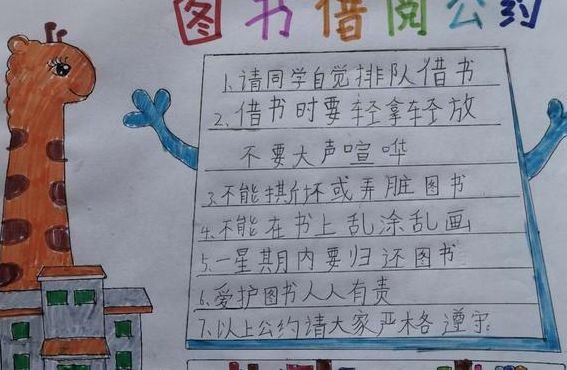 图书借阅公约
1.请同学自觉排队借书
2.借书时要轻拿轻放
不要大声喧哗
3.不能撕坏或弄脏图书
4.不能在书上乱涂乱画
5.一星期内要归还图书
6.爱护图书人人有责
7.以上公约请大家严格遵守